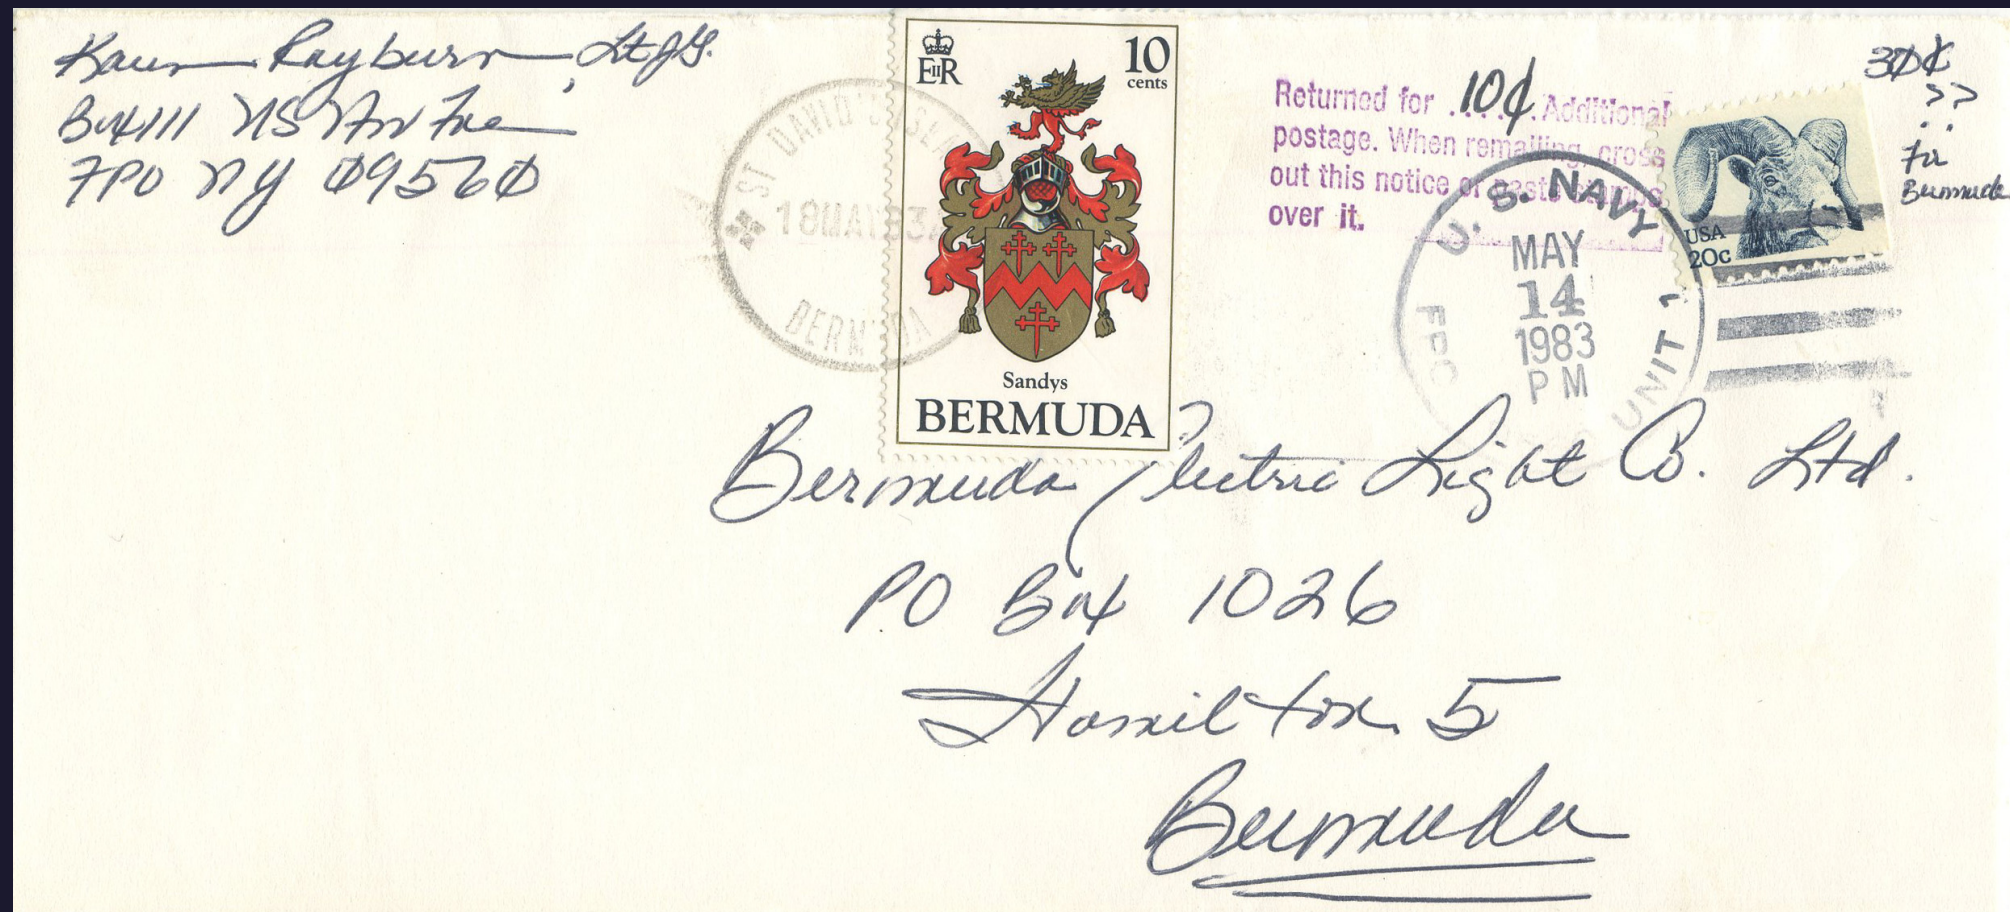 Karen Rayburn, Ltjg.
Box 111 NS Annex
FPO NY 09560
ST DAVID'S ISLAND
18 MAY 83
BERMUDA
EIIR
10
cents
Sandys
BERMUDA
Returned for ....10¢ Additional
postage. When remailing, cross
out this notice or paste stamps
over it.
U. S. NAVY
MAY
14
1983
PM
FPO
UNIT 1
USA
20c
30¢
??
for
Bermuda
Bermuda Electric Light Co. Ltd.
PO Box 1026
Hamilton 5
Bermuda